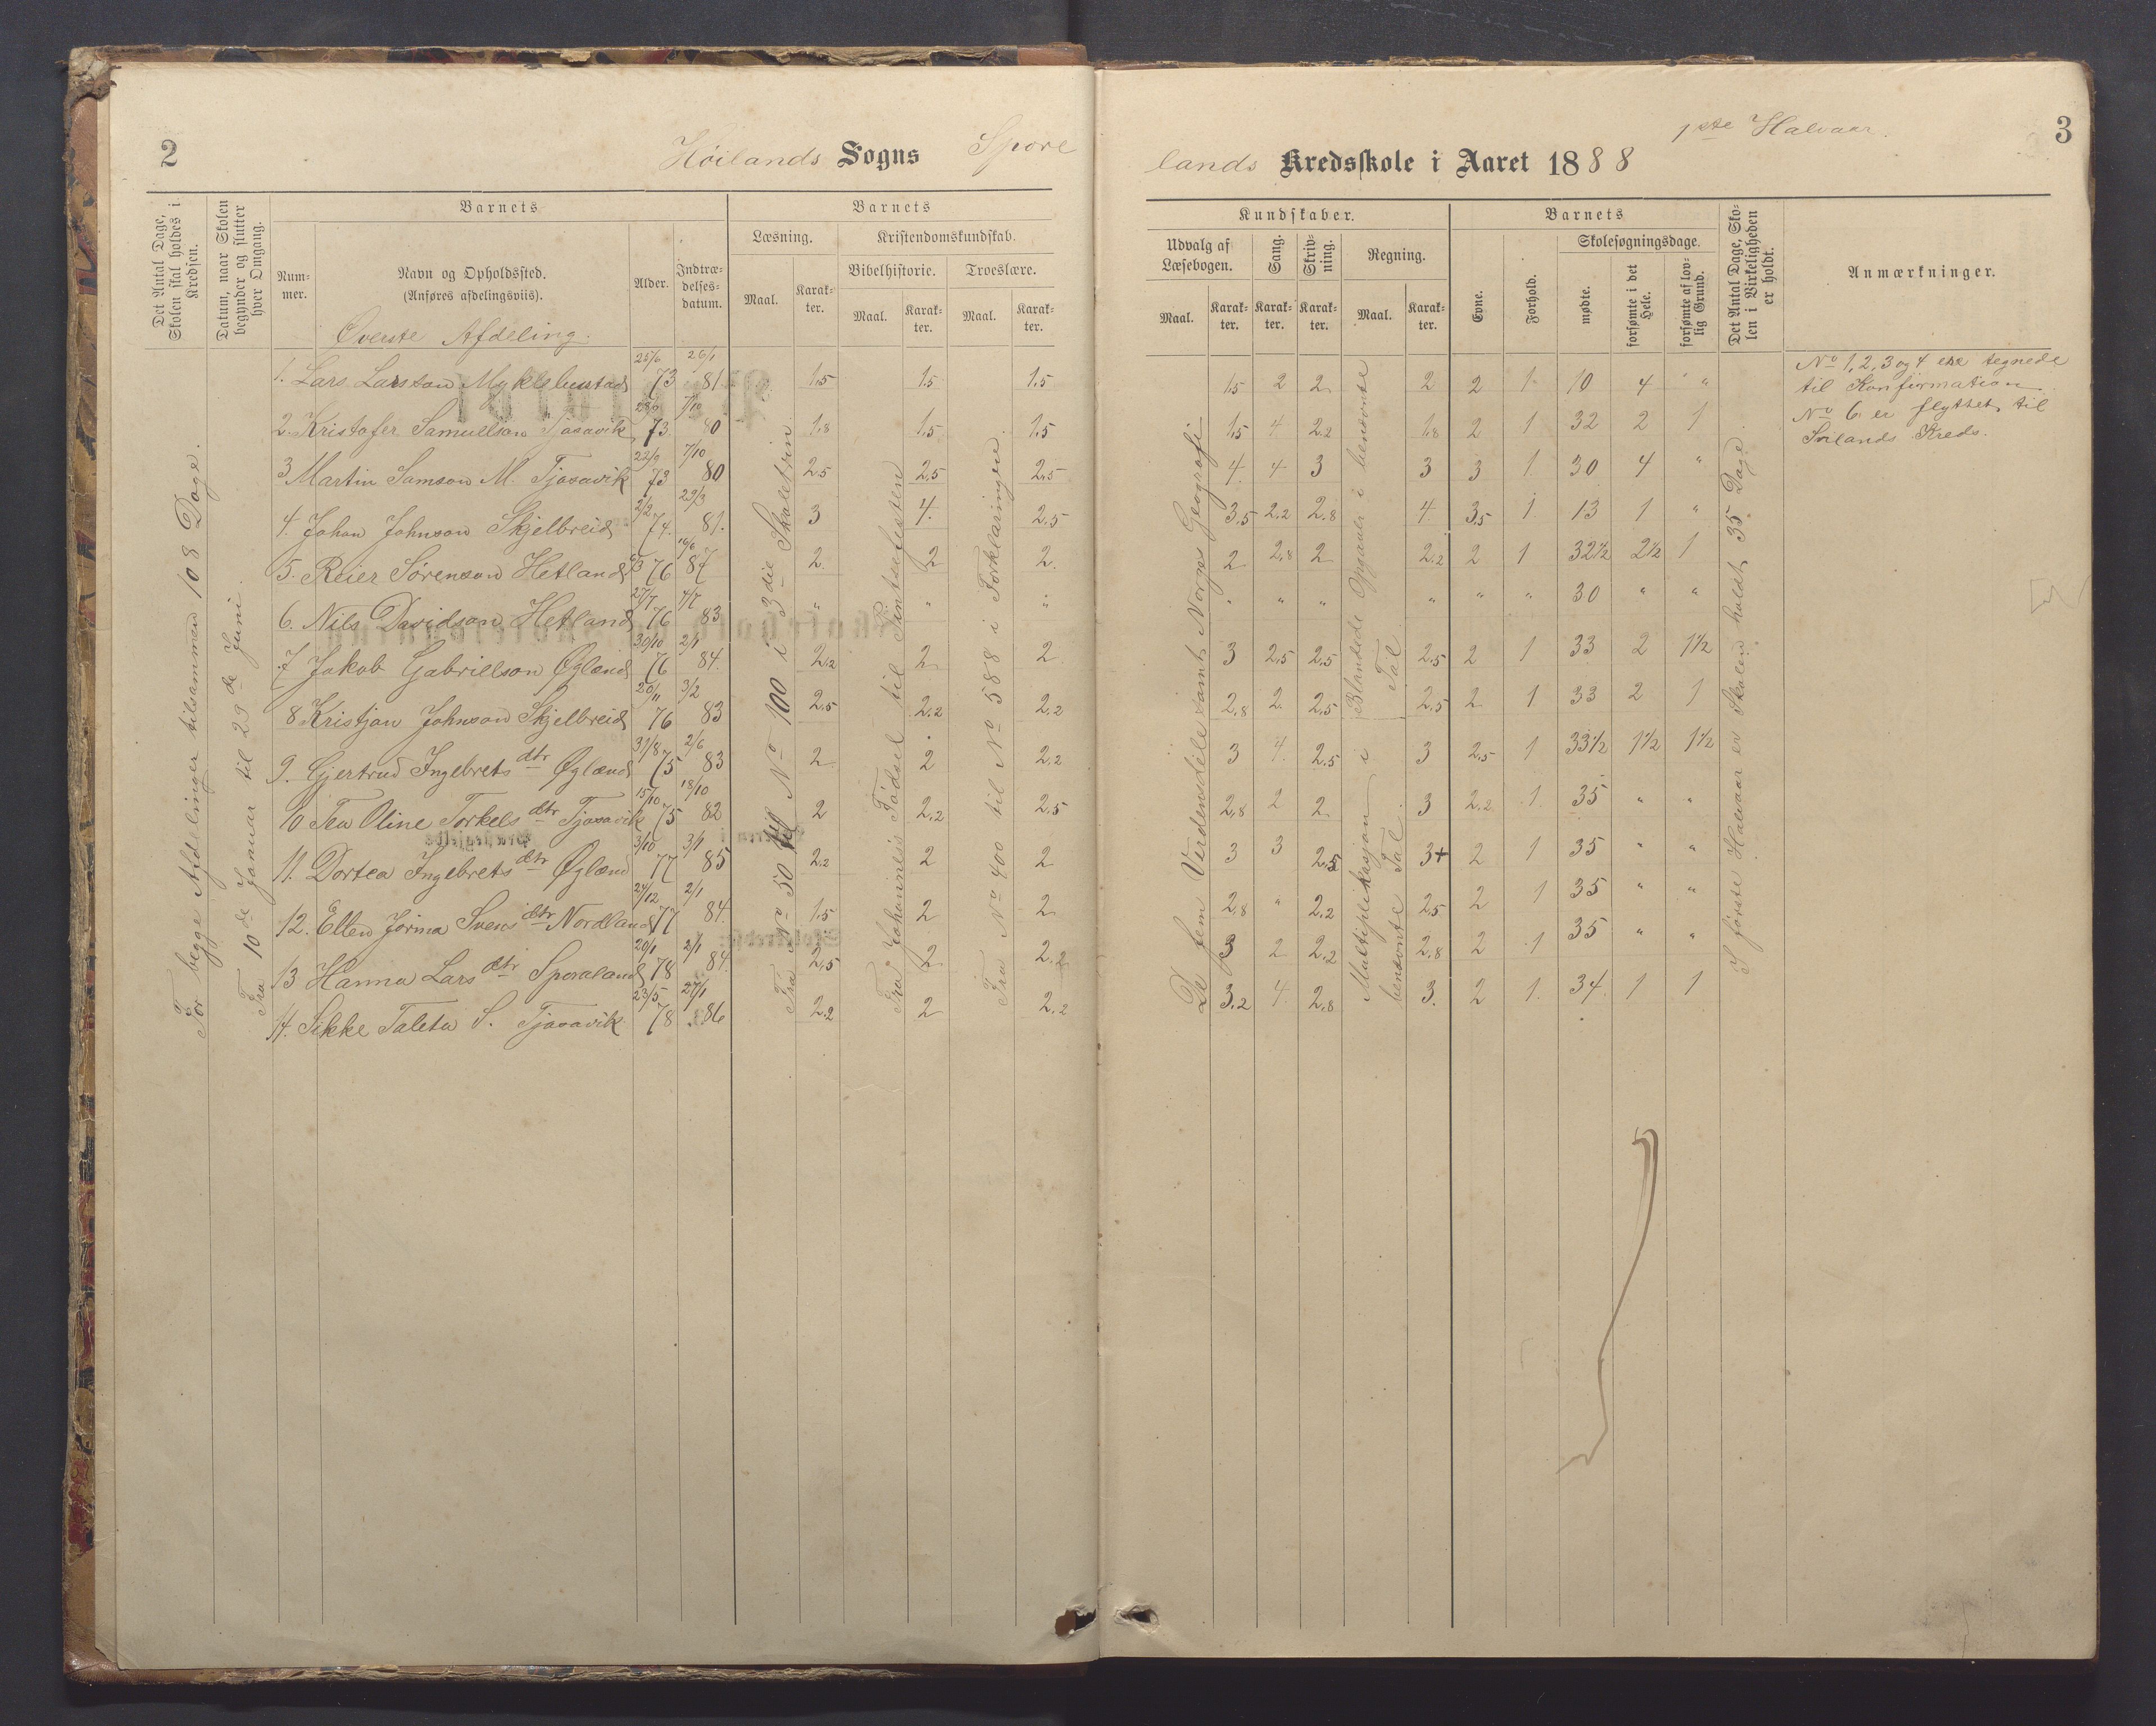 2
Høilands Sogns Spore
Det Antal Dage, Skolen skal holdes i Kredsen.
Datum, naar Skolen begynder og slutter hver Omgang.
Barnets
Num-
mer.
Navn og Opholdssted.
(Anføres afdelingsviis).
Alder.
Indtræ-
delses-
datum.
Barnets
Læsning.
Kristendomskundskab.
Bibelhistorie.
Troeslære.
Maal.
Karak-
ter.
Maal.
Karak-
ter.
Maal.
Karak-
ter.
Øverste Afdeling.
For begge Afdelinger tilsammen 108 Dage.
Fra 10de Januar til 29de Juni.
Fra No 50 til No 100 i 3die Skoletrin
Fra Johannes's Fødsel til Pintsefesten
Fra No 400 til No 588 i Forklaringen
1. Lars Larsson Myklebustad 25/6 73 26/1 81 1.5 1.5 1.5
2. Kristofer Samuelson Tjosavik 73 7/10 80 1.8 1.5 1.5
3 Martin Samson M. Tjosavik 22/9 73 7/10 80 2.5 2.5 2.5
4. Johan Johnson Skjelbreid 2/2 74. 29/3 81. 3 4. 2.5
5. Reier Sørenson Hetland 76 87 2. 2 2.
6. Nils Davidson Hetland 27/7 76 4/7 83 " " "
7 Jakob Gabrielson Øgland 30/10 76 2/1 84. 2.2 2 2
8 Kristjan Johnson Skjelbreid 20/11 76 3/2 83 2.5 2.2 2.2
9. Gjertrud Ingebretsdtr Øgland 31/8 75 2/6 83 2 2 2.2
10 Tea Oline Torkelsdtr Tjosavik 15/10 75 18/10 82 2 2.2 2.5
11. Dortea Ingebretsdtr Øgland 3/10 77 3/1 85 2.2 2 2
12. Ellen Jorina Svensdtr Nordland 24/12 77 2/1 84. 1.5 2 2
13 Hanna Larsdtr Sporaland 20/1 78 2/1 84. 2.5 2 2.2
14. Sikke Taleta S. Tjosavik 23/5 78 27/1 86 2.2 2 2.2
3
1ste Halvaar.
lands Kredsskole i Aaret 1888
Kundskaber.
Udvalg af
Læsebogen.
Sang.
Skriv-
ning.
Regning.
Maal.
Karak-
ter.
Karak-
ter.
Karak-
ter.
Maal.
Karak-
ter.
Barnets
Evne.
Forhold.
Skolesøgningsdage.
mødte.
forsømte i det Hele.
forsømte af lov-
lig Grund.
Det Antal Dage, Sko-
len i Virkeligheden
er holdt.
Anmærkninger.
De fem Verdensdele samt Norges Geografi
Multiplikasjon i benævnte Tal.
Blandede Opgaver i benævnte Tal
I første Halvaar er Skolen holdt 35 Dage
1.5 2 2 2 2 1 10 4 " "
1.5 4 2.2 1.8 2 1 32 2 1
4 4 3 3 3 1 30 4 "
3.5 2.2 2.8 4 3.5 1. 13 1 "
2 2.8 2 2.2 2 1 32½ 2½ 1
" " " " " " 30 " "
3 2.5 2.5 2.5 2 1 33 2 1½
2.8 2 2.5 2.5 2 1 33 2 1
3 4. 2.5 3 2.5 1 33½ 1½ 1½
2.8 2 2 3 2.2 1. 35 " "
3 3 2.5 3+ 2 1 35 " "
2.8 " 2.2 2.5 2 1 35 " "
3 2 2.2 2.8 2 1 35 " "
3.2 4. 2.8 3. 2 1. 34. 1 1
No 1, 2, 3 og 4 ere tegnede
til Konfirmation.
No 6. er flyttet til
Soilands Kreds.